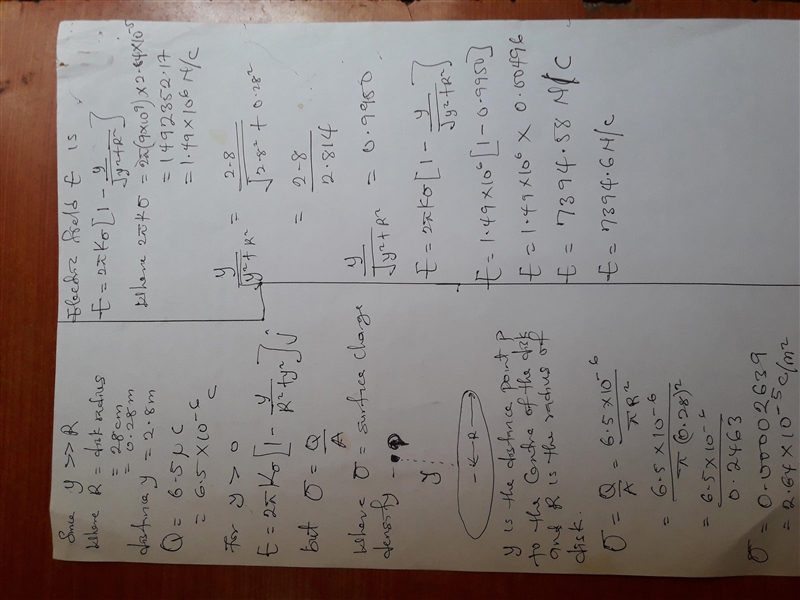 Since y >> R
Where R = disk radius
= 28cm
= 0.28m
distance y = 2.8m
Q = 6.5 μC
= 6.5 × 10⁻⁶ C
for y > 0
E = 2πKσ[1 - y/√(R²+y²)] ĵ
but σ = Q/A
Where σ = surface charge
density
P
y
← R →
y is the distance point P
to the Centre of the disk
and R is the radius of
disk.
σ = Q/A = 6.5×10⁻⁶/πR²
= 6.5×10⁻⁶/π(0.28)²
= 6.5×10⁻⁶/0.2463
σ = 0.00002639
= 2.64×10⁻⁵ C/m²
Electric field E is
E = 2πKσ[1 - y/√(y²+R²)]
Where 2πKσ = 2π(9×10⁹)×2.64×10⁻⁵
= 1492352.17
= 1.49×10⁶ N/C
y/√(y²+R²) = 2.8/√(2.8²+0.28²)
= 2.8/2.814
y/√(y²+R²) = 0.9950
E = 2πKσ[1 - y/√(y²+R²)]
E = 1.49×10⁶[1 - 0.9950]
E = 1.49×10⁶ × 0.00496
E = 7394.58 N/C
E = 7394.6 N/C